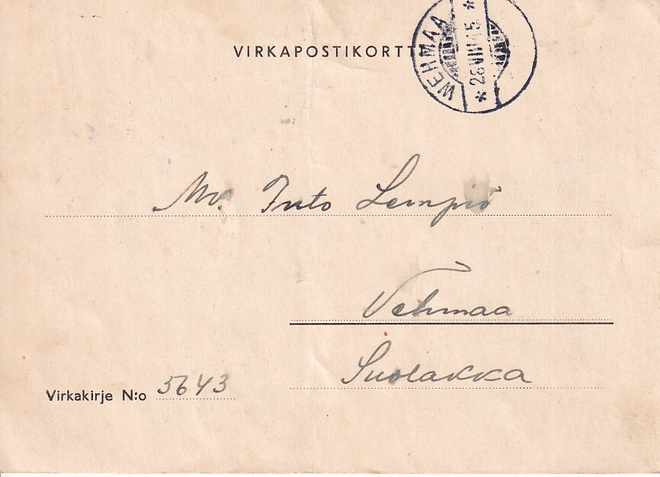 VIRKAPOSTIKORTT
WEHMAA
* 28 VIII 45 *
Mv. Into Lempiö
Vehmaa
Suolakka
Virkakirje N:o 5643